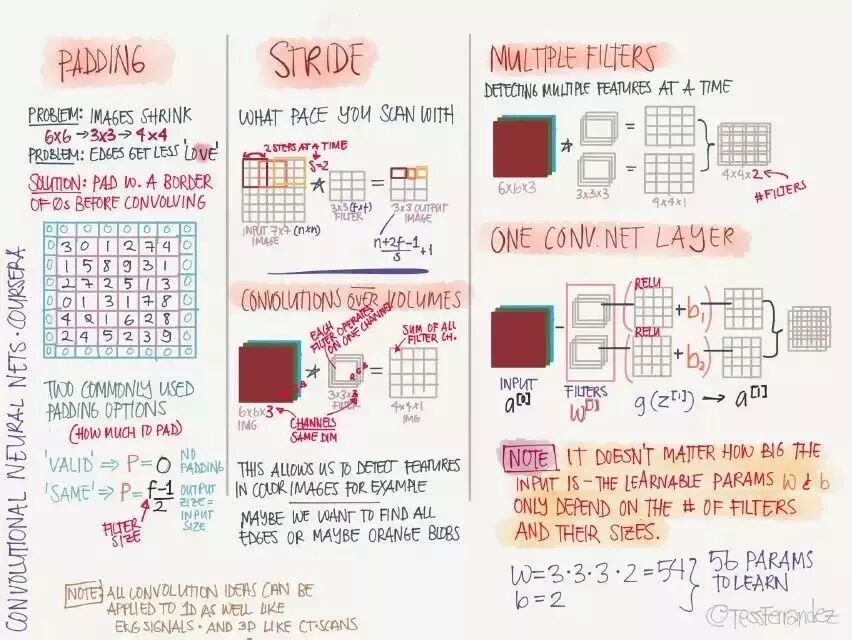 CONVOLUTIONAL NEURAL NETS · COURSERA
PADDING
PROBLEM: IMAGES SHRINK
6x6 → 3x3 → 4x4
PROBLEM: EDGES GET LESS 'LOVE'
SOLUTION: PAD W. A BORDER
OF 0s BEFORE CONVOLVING
0 0 0 0 0 0 0 0
0 3 0 1 2 7 4 0
0 1 5 8 9 3 1 0
0 2 7 2 5 1 3 0
0 0 1 3 1 7 8 0
0 4 2 1 6 2 8 0
0 2 4 5 2 3 9 0
0 0 0 0 0 0 0 0
TWO COMMONLY USED
PADDING OPTIONS
(HOW MUCH TO PAD)
'VALID' ⇒ P = 0 NO PADDING
'SAME' ⇒ P = f-1/2 OUTPUT SIZE = INPUT SIZE
FILTER SIZE
NOTE: ALL CONVOLUTION IDEAS CAN BE
APPLIED TO 1D AS WELL LIKE
EKG SIGNALS · AND 3D LIKE CT-SCANS
STRIDE
WHAT PACE YOU SCAN WITH
2 STEPS AT A TIME
S=2
* =
INPUT 7x7 (n×n)
IMAGE
3x3 (f×f)
FILTER
3x3 OUTPUT
IMAGE
n+2f-1/s +1
CONVOLUTIONS OVER VOLUMES
EACH
FILTER OPERATES
ON ONE CHANNEL
SUM OF ALL
FILTER CH.
* =
R G B
6x6x3
IMG
3x3x3
FILTER
4x4x1
IMG
CHANNELS
SAME DIM
THIS ALLOWS US TO DETECT FEATURES
IN COLOR IMAGES FOR EXAMPLE
MAYBE WE WANT TO FIND ALL
EDGES OR MAYBE ORANGE BLOBS
MULTIPLE FILTERS
DETECTING MULTIPLE FEATURES AT A TIME
* =
=
6x6x3
3x3x3
4x4x1
4x4x2
# FILTERS
ONE CONV. NET LAYER
RELU
( + b1)
RELU
( + b2)
INPUT
a[0]
FILTERS
W[1]
g(z[1]) → a[1]
NOTE IT DOESN'T MATTER HOW BIG THE
INPUT IS - THE LEARNABLE PARAMS W & b
ONLY DEPEND ON THE # OF FILTERS
AND THEIR SIZES.
W = 3·3·3·2 = 54
b = 2
56 PARAMS
TO LEARN
@TessFerrandez